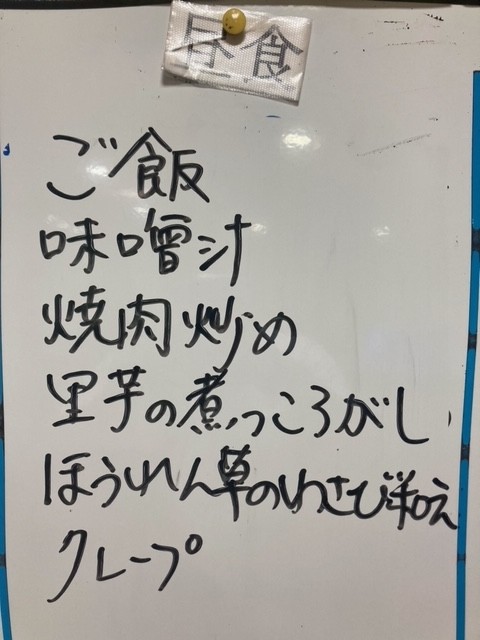 昼食
ご飯
味噌汁
焼肉炒め
里芋の煮っころがし
ほうれん草のわさび和え
クレープ